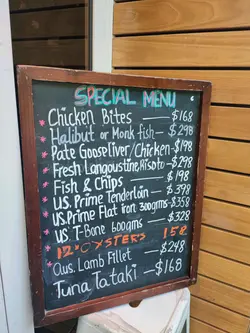 SPECIAL MENU
* Chicken Bites — $168
* Halibut or Monk fish — $298
* Pate Gooseliver/Chicken - $198
* Fresh Langoustine Risoto - $298
* Fish & Chips — $198
* U.S. Prime Tenderloin — $398
* U.S. Prime Flat iron 300gms - $358
* US T-Bone 600gms — $328
12'OYSTERS 158
Aus. Lamb Fillet — $248
Tuna Tataki — $168